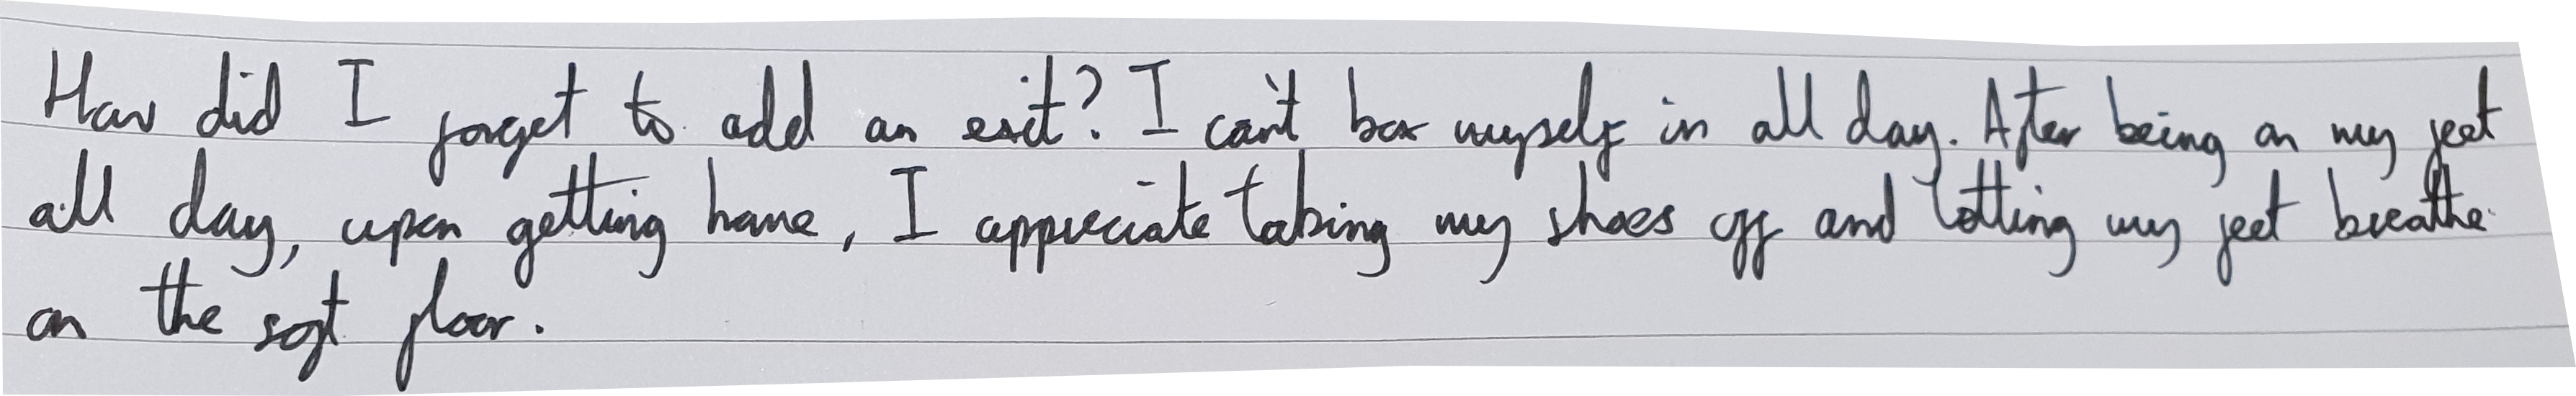 How did I forget to add an exit? I can't box myself in all day. After being on my feet
all day, upon getting home, I appreciate taking my shoes off and letting my feet breathe
on the soft floor.